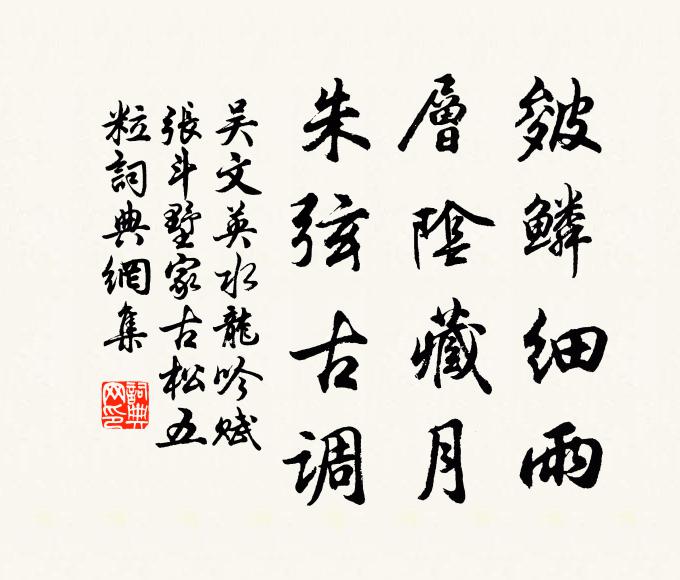 皴鱗細雨
層陰藏月
朱弦古調
吴文英水龍吟賦
張斗墅家古松五
粒詞典網集
詞典网印